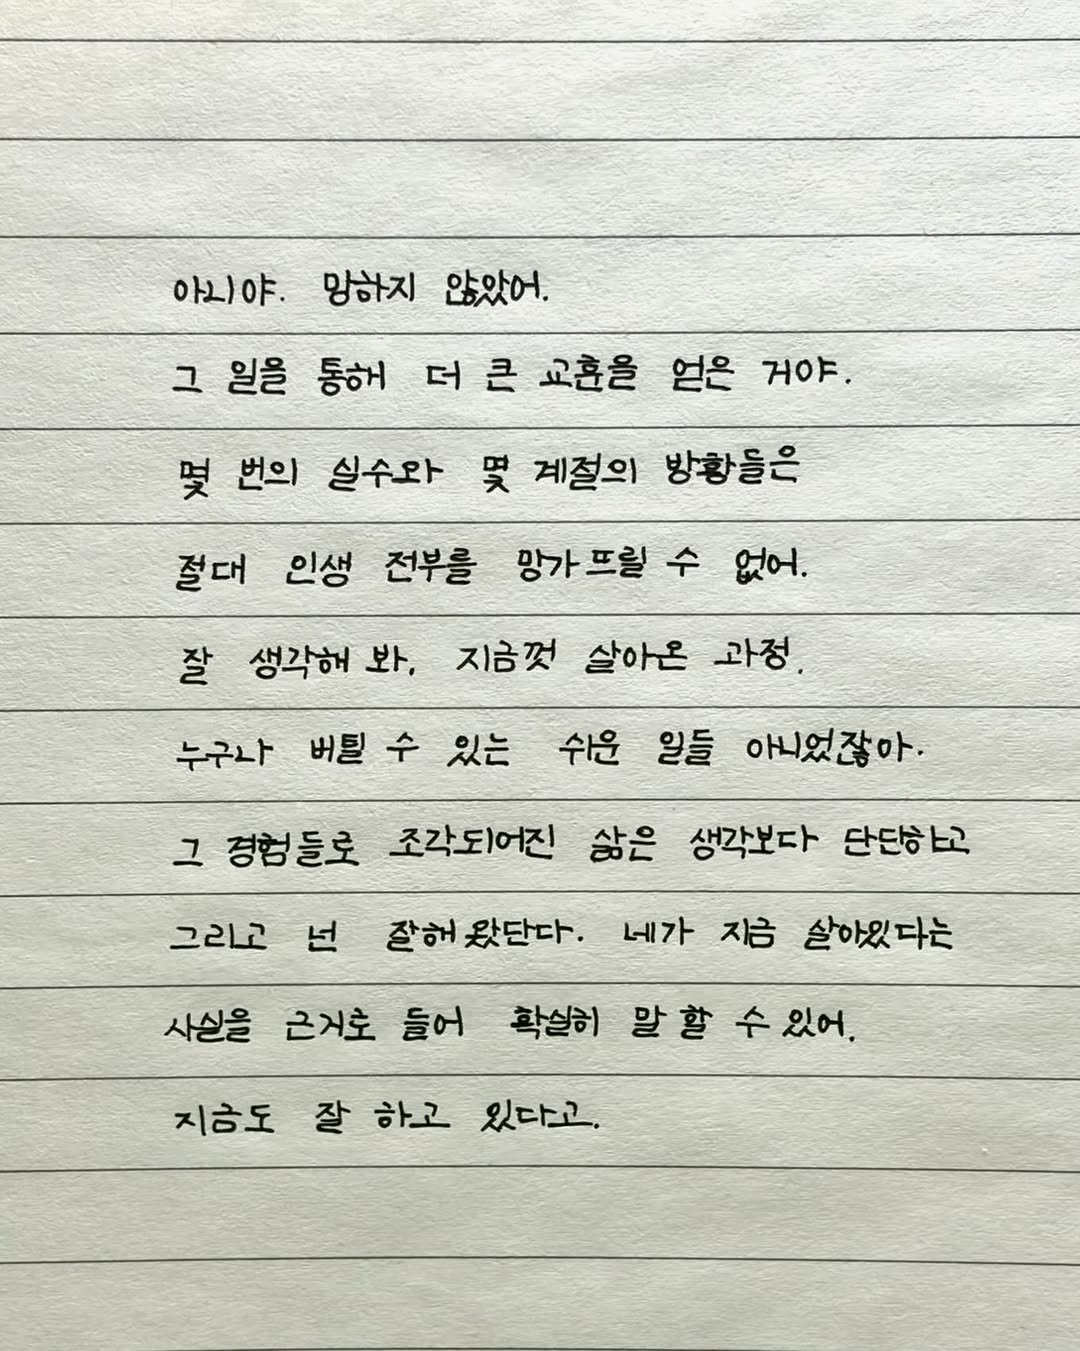 아니야. 망하지 않았어.
그 일을 통해 더 큰 교훈을 얻은 거야.
몇 번의 실수와 몇 계절의 방황들은
절대 인생 전부를 망가뜨릴 수 없어.
잘 생각해 봐, 지금껏 살아온 과정.
누구나 버틸 수 있는 쉬운 일들 아니었잖아.
그 경험들로 조각되어진 삶은 생각보다 단단하고
그리고 넌 잘해왔단다. 네가 지금 살아있다는
사실을 근거로 들어 확실히 말 할 수 있어.
지금도 잘 하고 있다고.